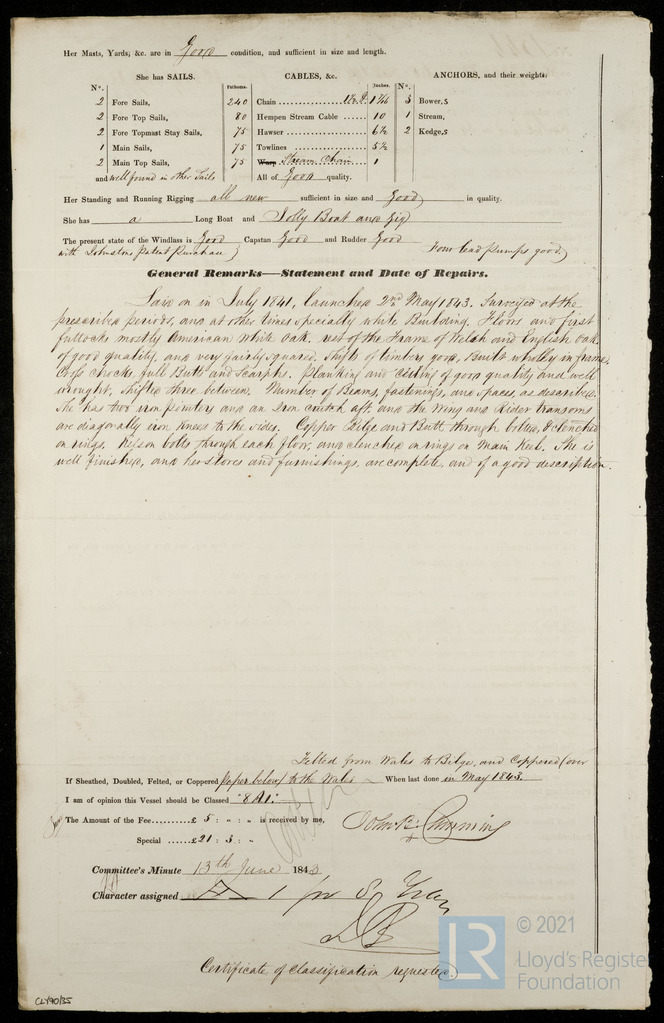 Her Masts, Yards, &c. are in Good condition, and sufficient in size and length.
She has SAILS.
CABLES, &c.
ANCHORS, and their weights.
No. Fathoms. Inches. No.
2 Fore Sails, 240 Chain 1 7/16 3 Bower,s
2 Fore Top Sails, 80 Hempen Stream Cable 10 1 Stream,
2 Fore Topmast Stay Sails, 75 Hawser 6½ 2 Kedge,s
1 Main Sails, 75 Towlines 5½
2 Main Top Sails, 75 Warp Stream Chain 1
and well found in other Sails All of Good quality.
Her Standing and Running Rigging all new sufficient in size and Good in quality.
She has a Long Boat and Jolly Boat and Gig
The present state of the Windlass is Good Capstan Good and Rudder Good Four lead pumps good
with Johnstons Patent Purchase
General Remarks—Statement and Date of Repairs.
Laid on in July 1841, launched 2nd May 1843. Surveyed at the
prescribed periods, and at other times specially while Building. Floors and first
futtocks mostly American White Oak, rest of the Frame of Welsh and English Oak
of good quality, and very fairly squared. Shifts of timbers good, Built wholly in frame
Cross Chocks, full Butts and Scarphs. Planking and Ceiling of good quality and well
wrought, Shifted three between. Number of Beams, fastenings, and spaces, as described.
She has two iron pointers and an Iron crutch aft, and the Wing and Rider transoms
are diagonally iron kneed to the sides. Copper Bilge and Butt through bolted, & clenched
on rings. Kelson bolts through each floor, and clenched on rings on Main Keel. She is
well finished, and her stores and furnishings, are complete, and of a good description.
Felted from Wales to Bilge, and Coppered (over
If Sheathed, Doubled, Felted, or Coppered Paper below) to the Wales When last done in May 1843.
I am of opinion this Vessel should be Classed "8 A1."
The Amount of the Fee £ 5 : „ : „ is received by me,
Special £21 : 3 : „
Committee's Minute 13th June 1843
Character assigned A 1 for 8 Years
Certificate of Classification requested.
CLY90/35
LR
© 2021
Lloyd's Register
Foundation